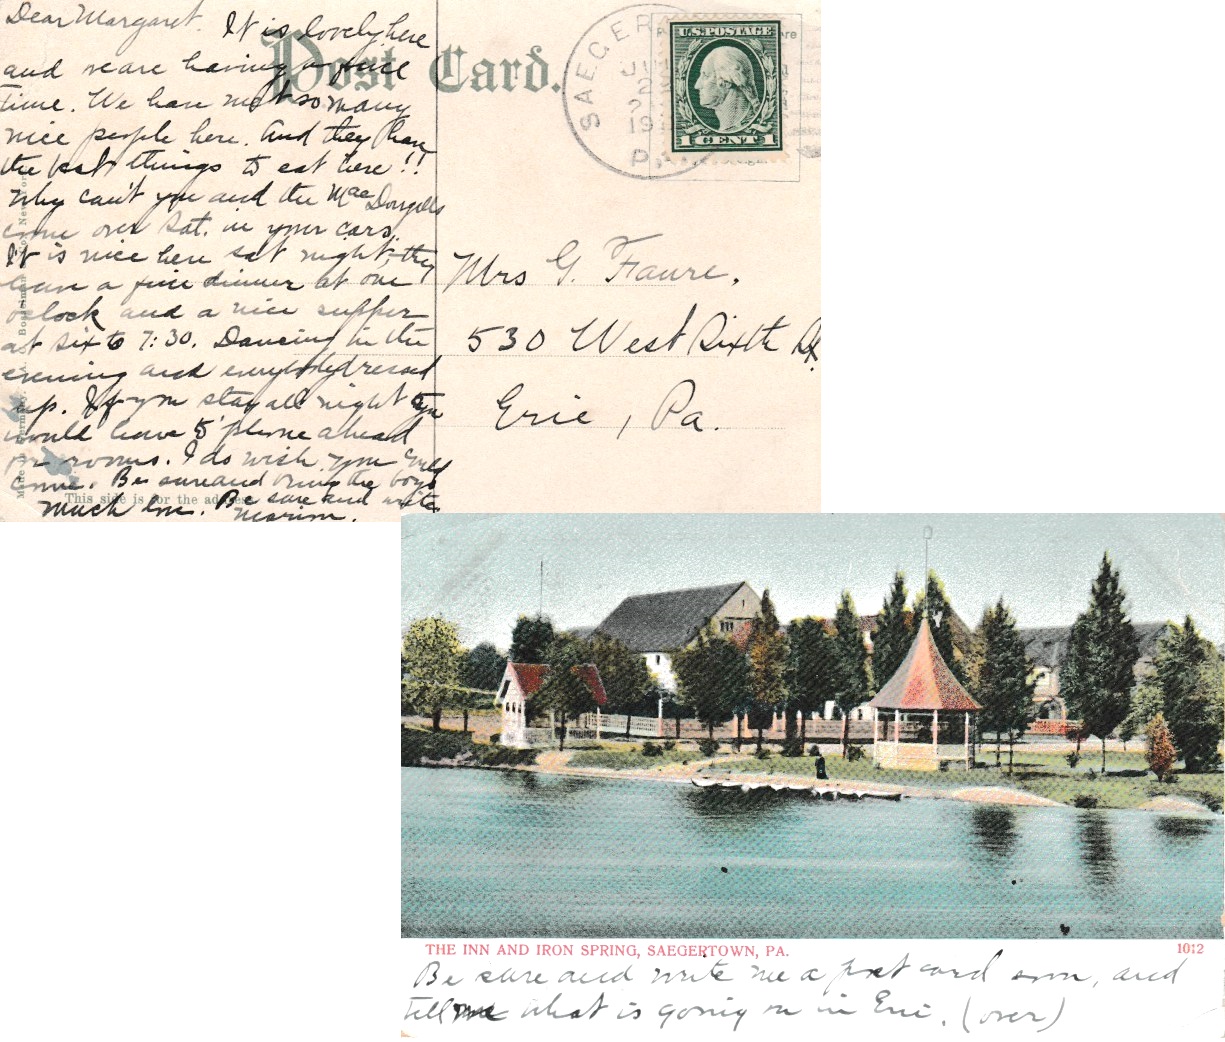 Dear Margaret. It is lovely here
and we are having a fine
time. We have met so many
nice people here. And they have
the best things to eat here!!
Why can't you and the MacDougalls
come over Sat. in your cars.
It is nice here sat night, they
have a fine dinner at one
o'clock and a nice supper
at six to 7:30. Dancing in the
evening and everybody dressed
up. If you stay all night you
would have to 'phone ahead
for rooms. I do wish you could
come. Be sure and bring the boys
Much love. Be sure and write
Marion.
Post Card.
SAEGER
PA.
U.S. POSTAGE
1 CENT 1
Mrs G. Faure.
530 West Sixth St
Erie, Pa.
This side is for the address
Made in Germany.
THE INN AND IRON SPRING, SAEGERTOWN, PA.
1012
Be sure and write me a post card soon, and
tell me what is going on in Erie. (over)